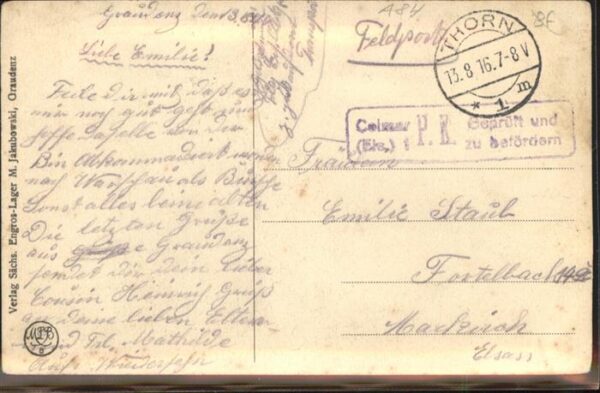 Graudenz den 13.8.16
Liebe Emilie!
Teile dir mit daß es
mir noch gut geht und
hoffe dasselbe von dir
Bin Abkommandiert worden
nach Warschau als Bursche
Sonst alles beim alten
Die letzten Grüße
aus Graudenz
sendet dir dein lieber
Cousin Heinrich Gruß
an deine lieben Eltern
und Frl. Mathilde
Auf Wiedersehn
484
Feldpost
THORN
13.8.16.7-8V
* 1 m
Colmar P. K. Geprüft und
(Els.) zu befördern
Fräulein
Emilie Staub
Fortelbach
Markirch
Elsass
Verlag Sächs. Engros-Lager M. Jakubowski, Graudenz